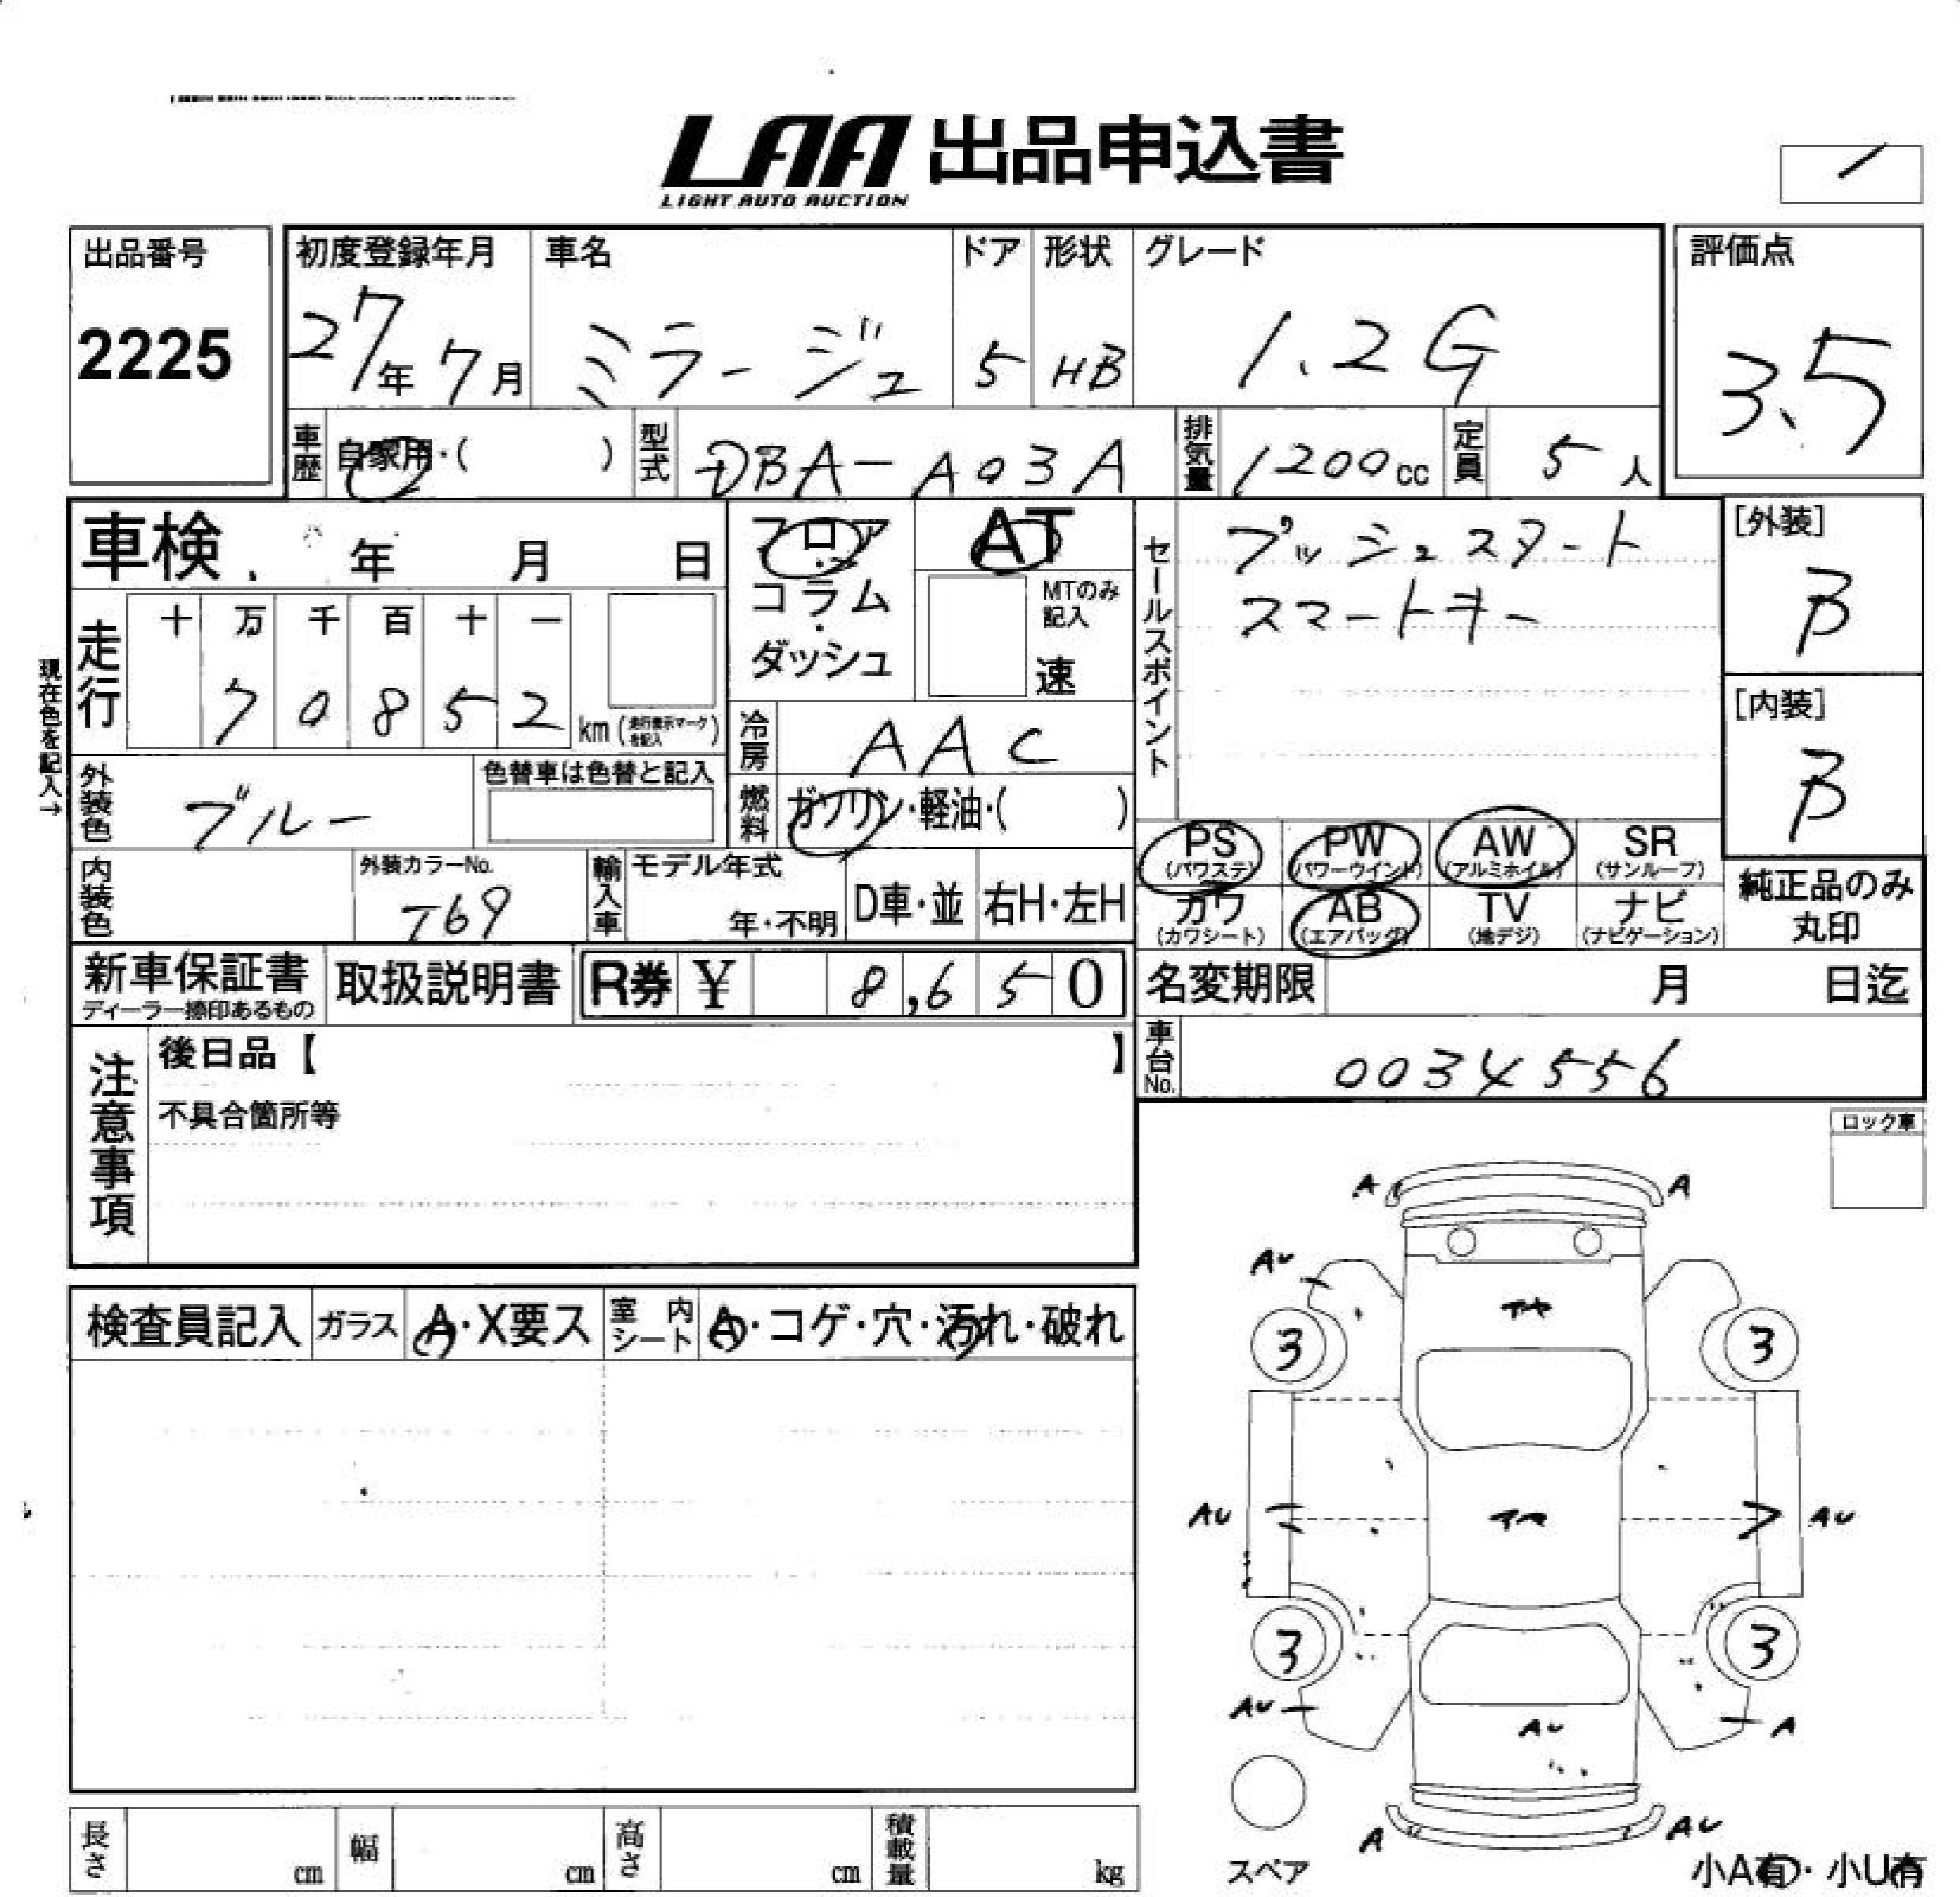 LAA 出品申込書
LIGHT AUTO AUCTION
出品番号
2225
初度登録年月
27年 7月
車名
ミラージュ
ドア
5
形状
HB
グレード
1.2G
評価点
3.5
車歴 自家用・( )
型式 DBA-A03A
排気量 1200cc
定員 5人
車検 年 月 日
フロア
コラム
ダッシュ
AT
MTのみ記入
速
セールスポイント
プッシュスタート
スマートキー
[外装]
B
[内装]
B
現在色を記入→
走行
十 万 千 百 十 一
7 0 8 5 2 km (走行表示マークを記入)
冷房 AAC
外装色 ブルー
色替車は色替と記入
燃料 ガソリン・軽油・( )
PS (パワステ)
PW (パワーウインド)
AW (アルミホイル)
SR (サンルーフ)
カワ (カワシート)
AB (エアバック)
TV (地デジ)
ナビ (ナビゲーション)
純正品のみ
丸印
内装色
外装カラーNo.
T69
輸入車
モデル年式
年・不明
D車・並
右H・左H
新車保証書
ディーラー捺印あるもの
取扱説明書
R券 ¥ 8,650
名変期限 月 日迄
車台No. 0034556
注意事項
後日品【 】
不具合箇所等
ロック車
検査員記入
ガラス A・X要ス
室内シート A・コゲ・穴・汚れ・破れ
A A
AU
3 3
AU AU
3 3
AU A
AU
A AU
スペア
小A有・小U有
長さ cm
幅 cm
高さ cm
積載量 kg